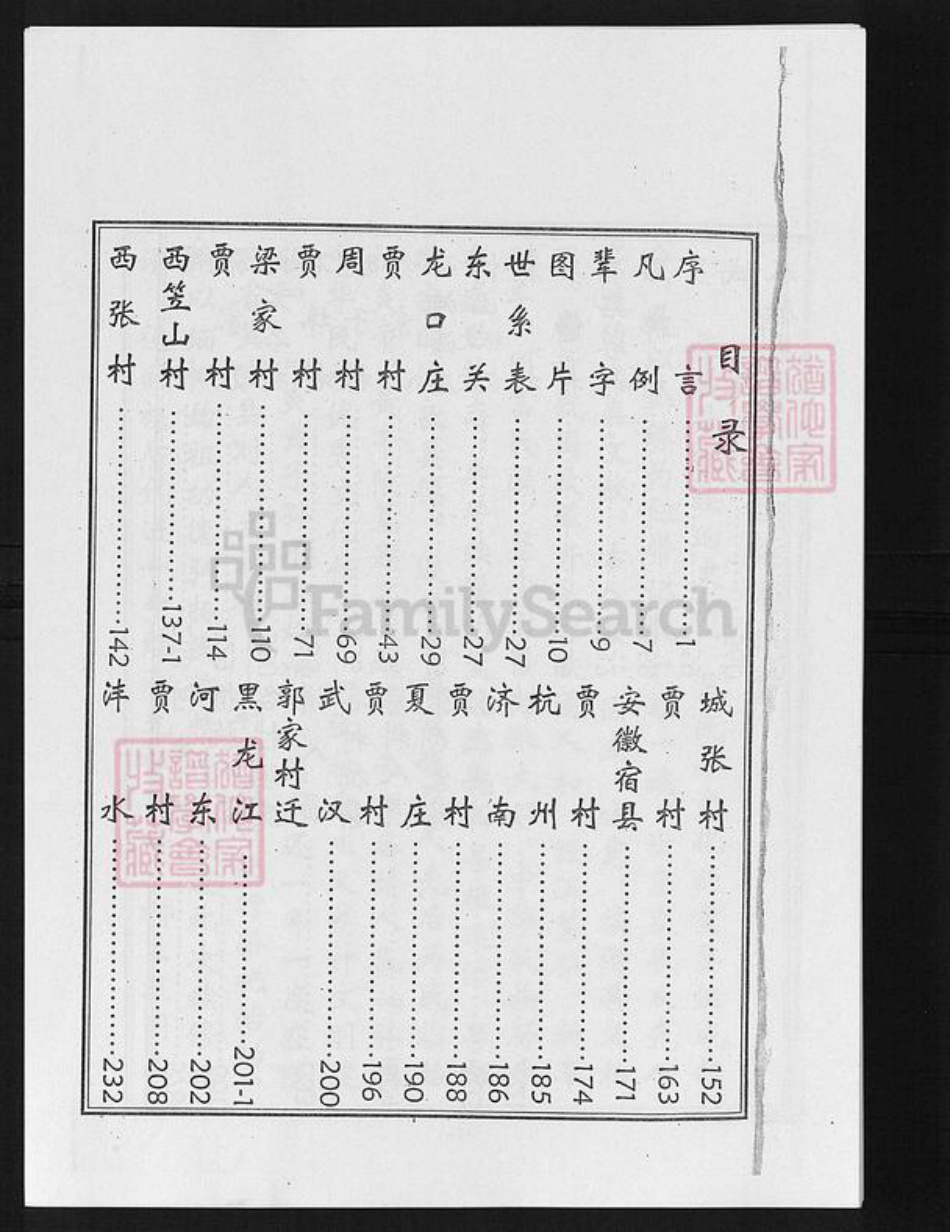 目录
序言……1
凡例……7
辈字……9
图片……10
世系表……27
东关……27
龙口庄……29
贾村……43
周村……69
贾村……71
梁家村……110
贾村……114
西笠山村……137-1
西张村……142
城张村……152
贾村……163
安徽宿县……171
贾村……174
杭州……185
济南……186
贾村……188
夏庄……190
贾村……196
武汉……200
郭家村迁
黑龙江……201-1
河东……202
贾村……208
沣水……232
FamilySearch